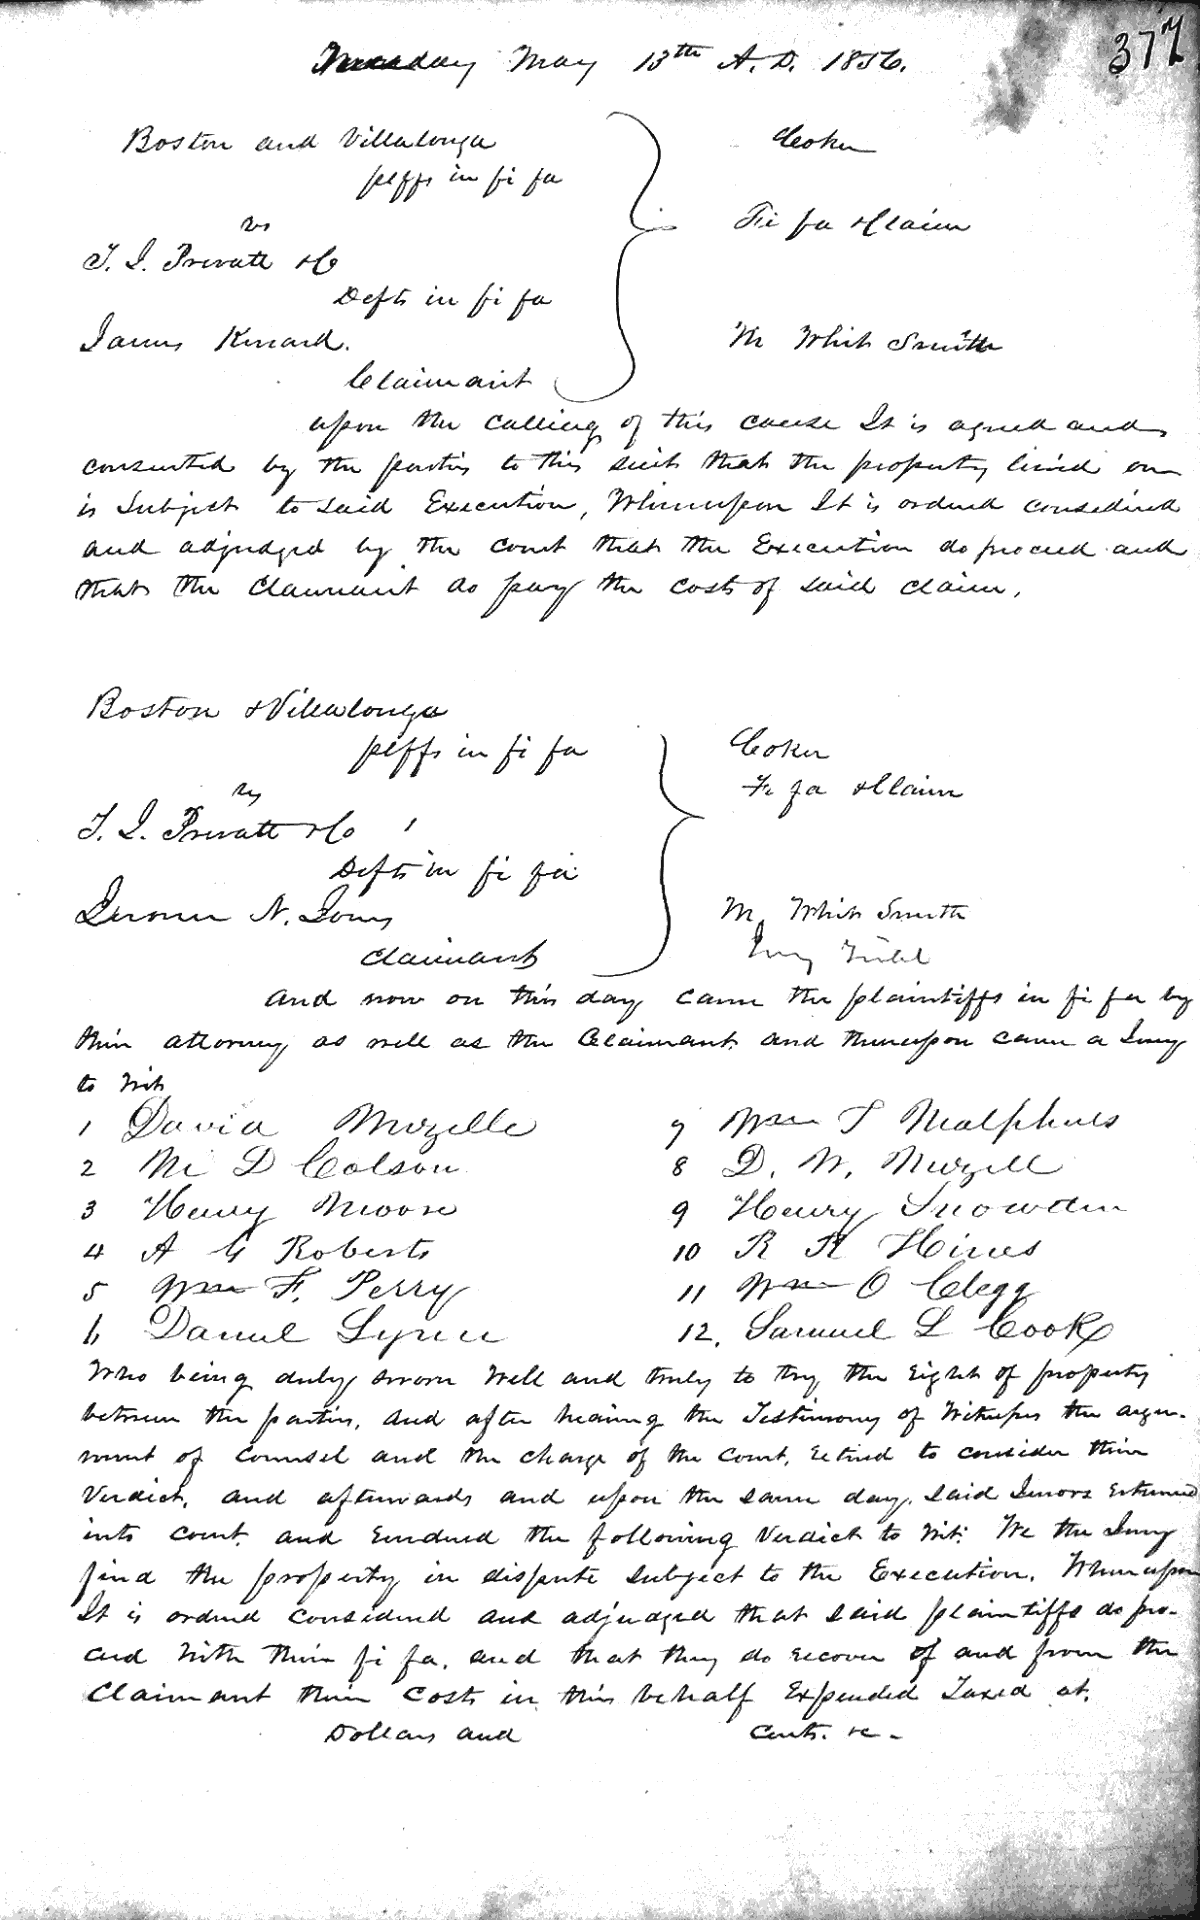 377
Tuesday May 13th A. D. 1856.
Boston and Villalonga
plffs in fi fa
vs
T. I. Privatt & Co
Defts in fi fa
James Kinard.
Claimant
Coker
Fi fa & Claim
M Whit Smith
upon the calling of this cause It is agreed and
consented by the parties to this suit that the property levied on
is Subject to said Execution, Whereupon It is ordered considered
and adjudged by the court that the Execution do proceed and
that the Claimant do pay the costs of said claim.
Boston & Villalonga
plffs in fi fa
vs
T. I. Privatt & Co
Defts in fi fa
N. Jones
claimant
Coker
Fi fa & Claim
M. Whit Smith
Jury Trial
And now on this day came the plaintiffs in fi fa by
their attorney as well as the Claimant. and thereupon came a Jury
to wit
1 David Mizelle
2 M D Colson
3 Henry Moore
4 A G Roberts
5 Wm F. Perry
6 Daniel Lynn
7 Wm T Malphurs
8 D. W. Mizell
9 Henry Snowden
10 R R Hines
11 Wm O Clegg
12. Samuel L Cook
Who being duly sworn Well and truly to try the right of property
between the parties, and after hearing the Testimony of Witnesses the argu-
ment of Counsel and the charge of the Court, retired to consider their
Verdict, and afterwards and upon the same day, said Jurors returned
into court. and rendered the following Verdict to Wit: We the Jury
find the property in dispute subject to the Execution. Whereupon
It is ordered considered and adjudged that said plaintiffs do pro-
ceed with their fi fa, and that they do recover of and from the
Claimant their costs in this behalf Expended Taxed at.
Dollars and cents. &c -